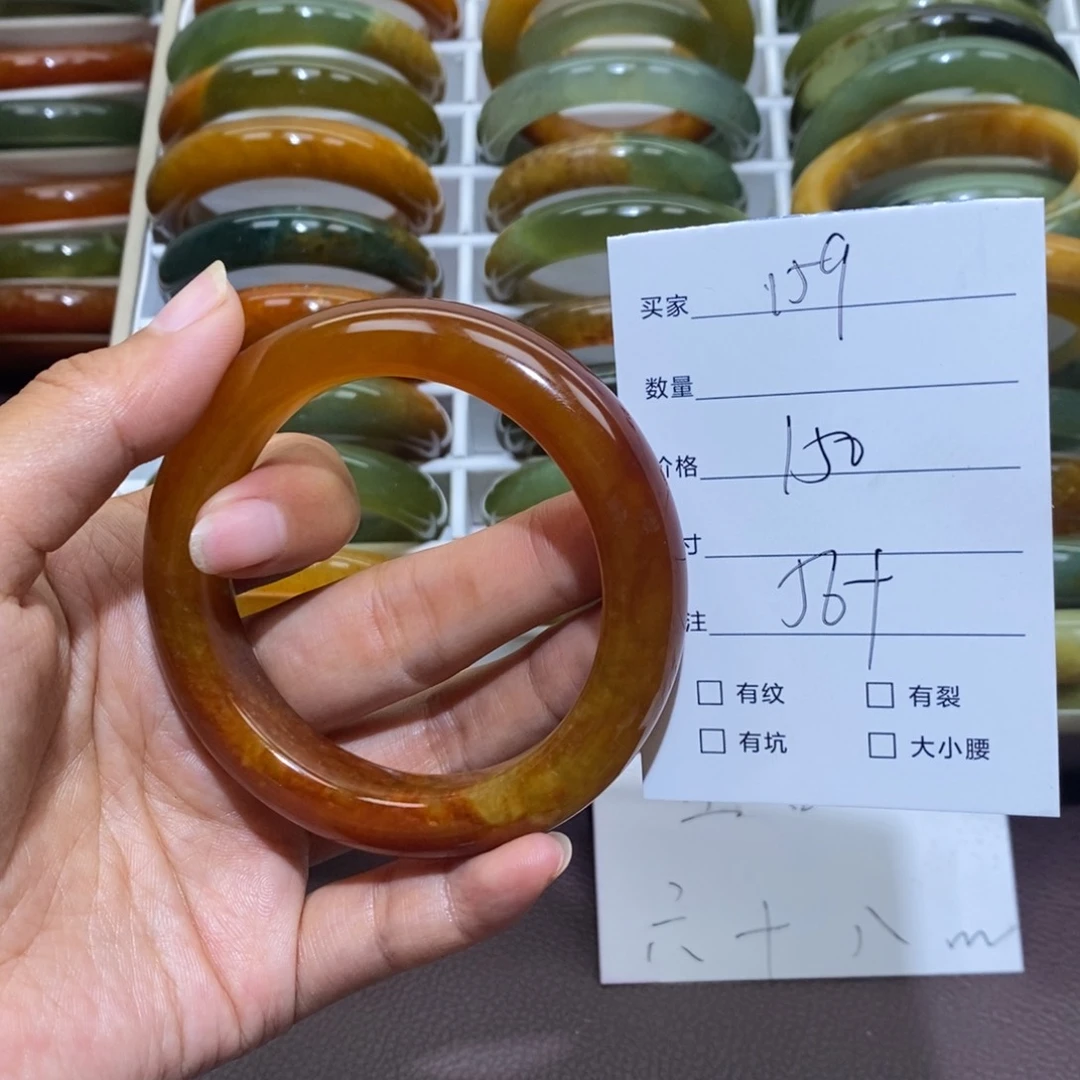 买家 159
数量
价格 150
寸
注 564
有纹 有裂
有坑 大小腰
六十八m